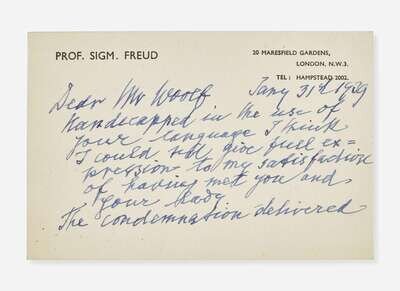 PROF. SIGM. FREUD
20 MARESFIELD GARDENS,
LONDON, N.W.3.
TEL: HAMPSTEAD 2002.
Jany 31st 1939
Dear Mr Woolf
Handicapped in the use of
your language I think
I could not give full ex=
pression to my satisfaction
of having met you and
your lady
The condemnation delivered